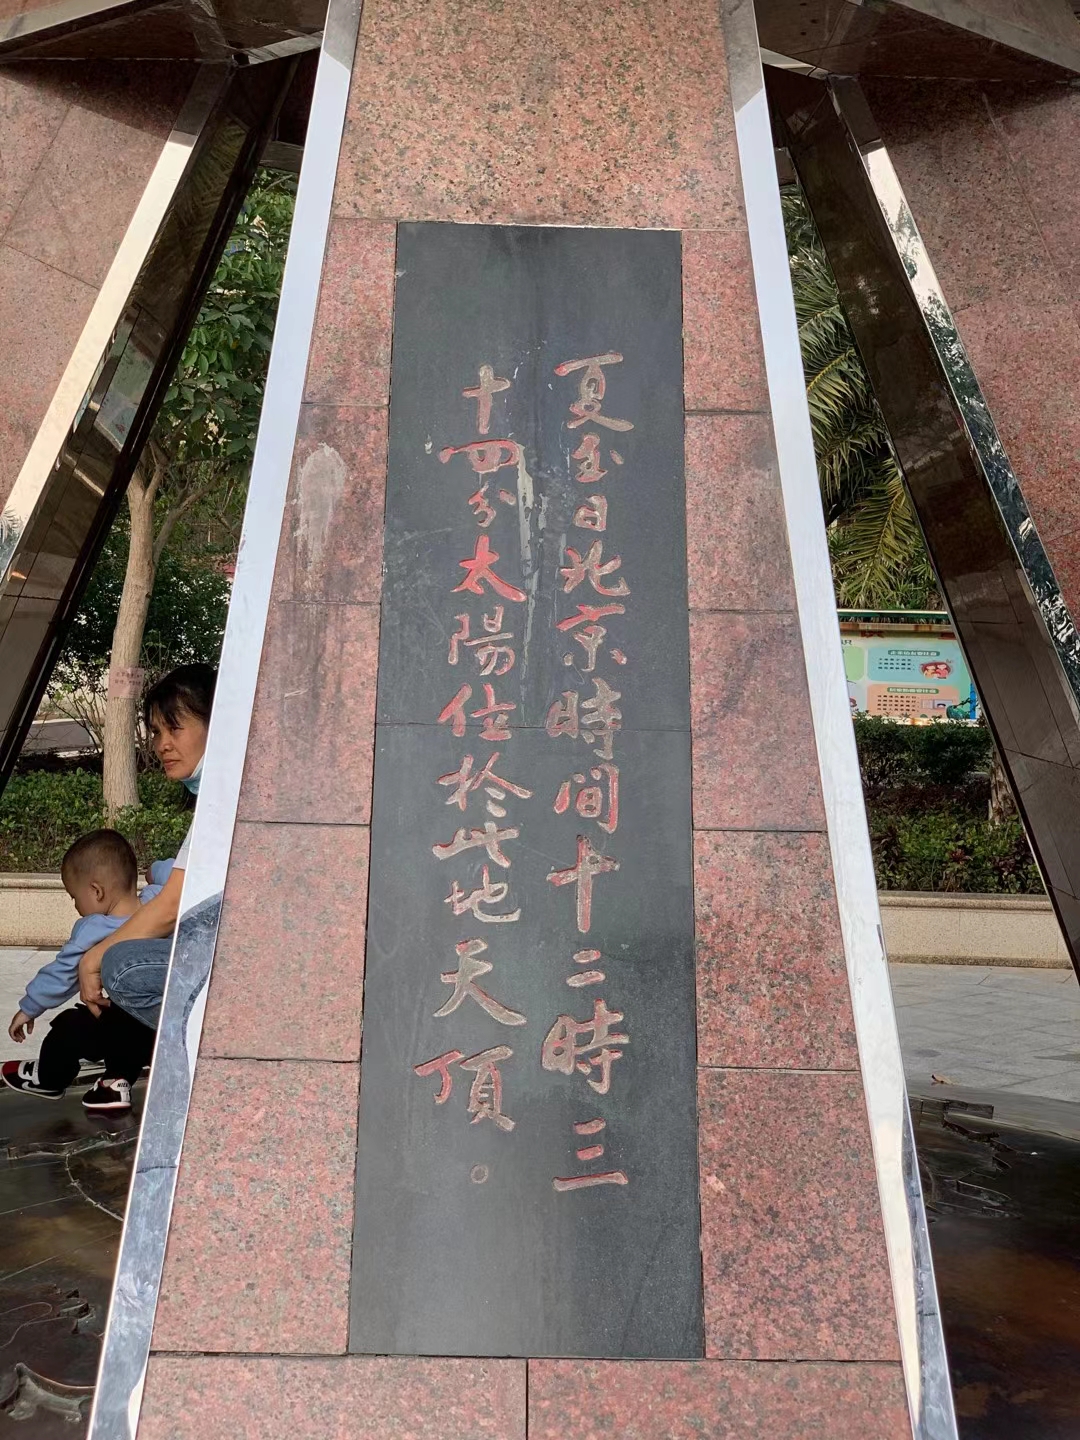 夏至日北京時間十二時三
十四分太陽位於此地天頂。